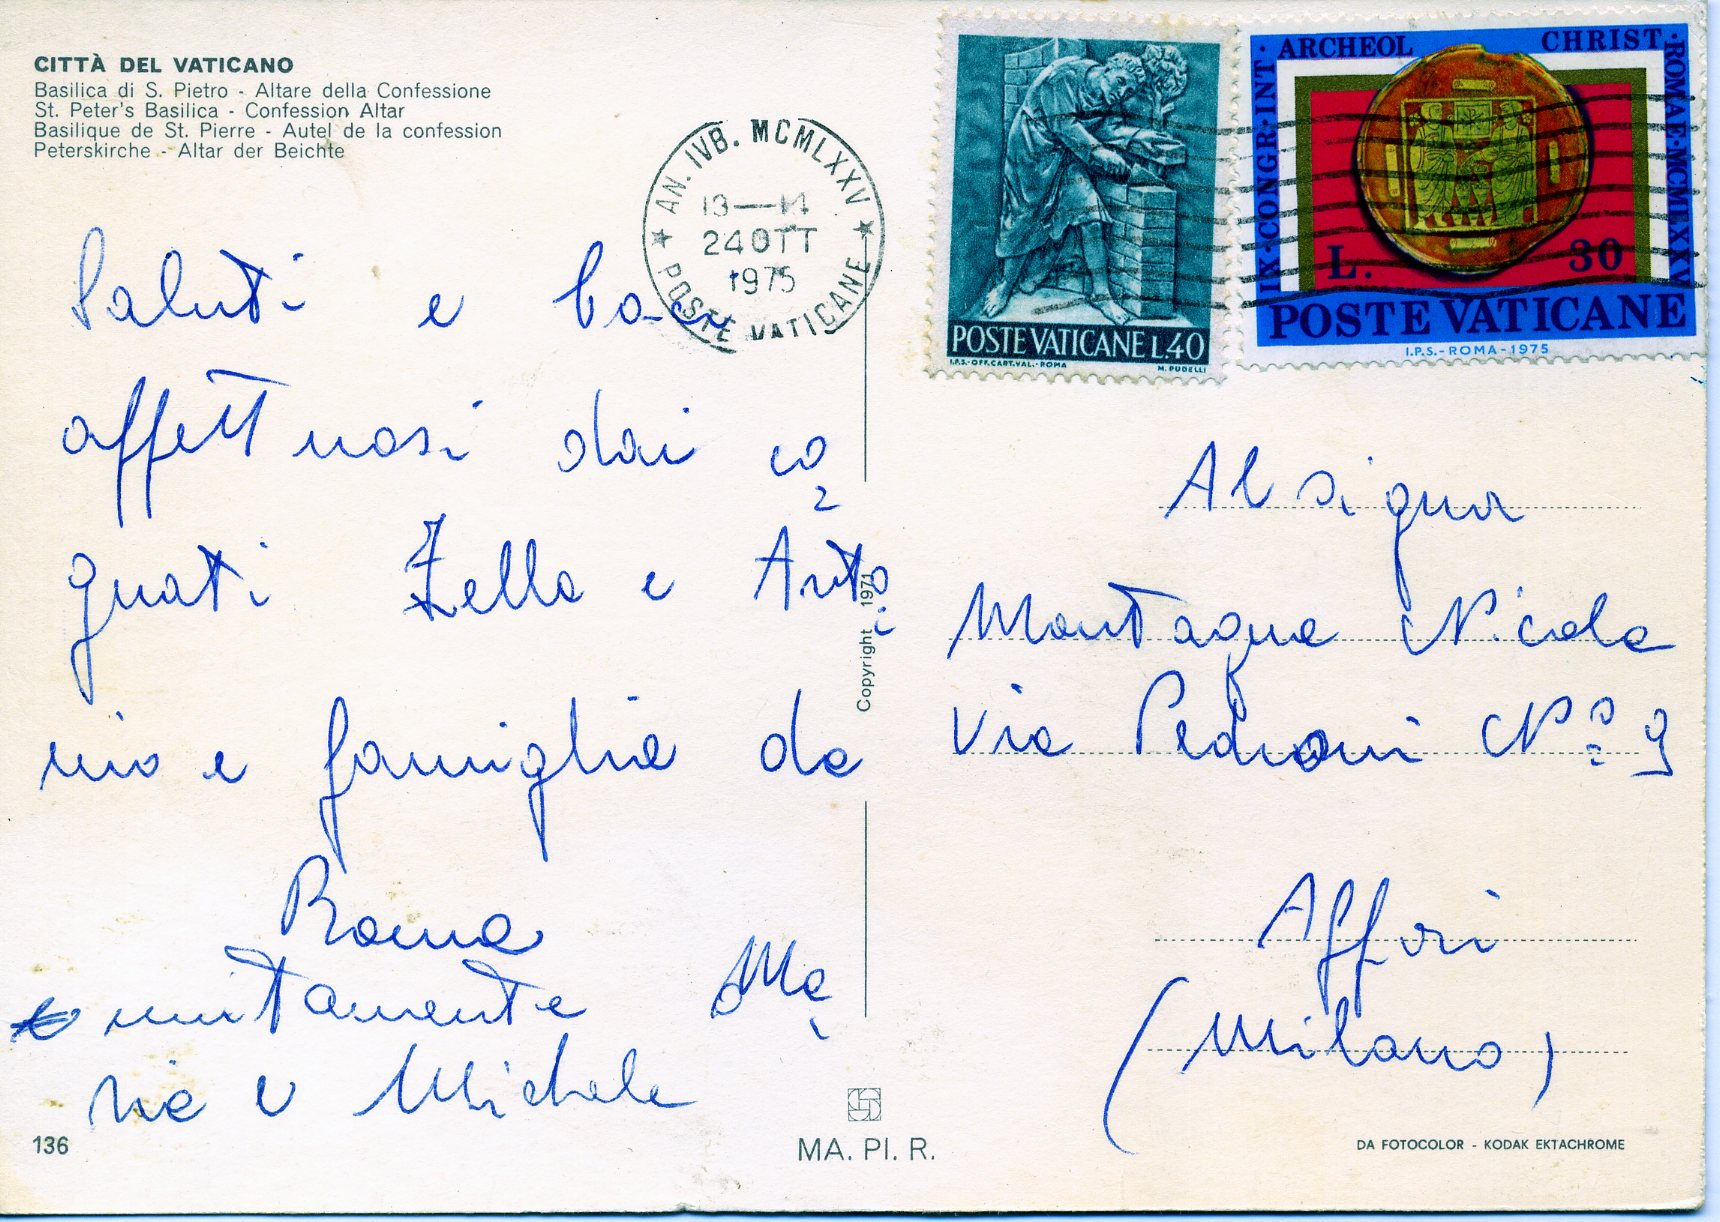 CITTÀ DEL VATICANO
Basilica di S. Pietro - Altare della Confessione
St. Peter's Basilica - Confession Altar
Basilique de St. Pierre - Autel de la confession
Peterskirche - Altar der Beichte
AN. IVB. MCMLXXV
13—14
24 OTT
1975
POSTE VATICANE
POSTE VATICANE L.40
I.P.S.-OFF.CART.VAL.-ROMA M. PUDELLI
IX·CONGR·INT·ARCHEOL CHRIST·ROMAE·MCMLXXV
L. 30
POSTE VATICANE
I.P.S.-ROMA-1975
Saluti e baci
affettuosi dai co
gnati Zella e Anto
nio e famiglia da
Roma
unitamente Ma
ria e Michele
Al signor
Montagna Nicola
Via Pedroni N° 9
Affori
(Milano)
Copyright 1971
136
MA. PI. R.
DA FOTOCOLOR - KODAK EKTACHROME